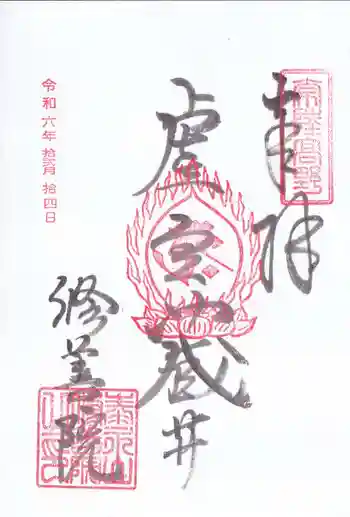 奉拝
虚空蔵井
修善院
令和六年 拾弐月 拾四日